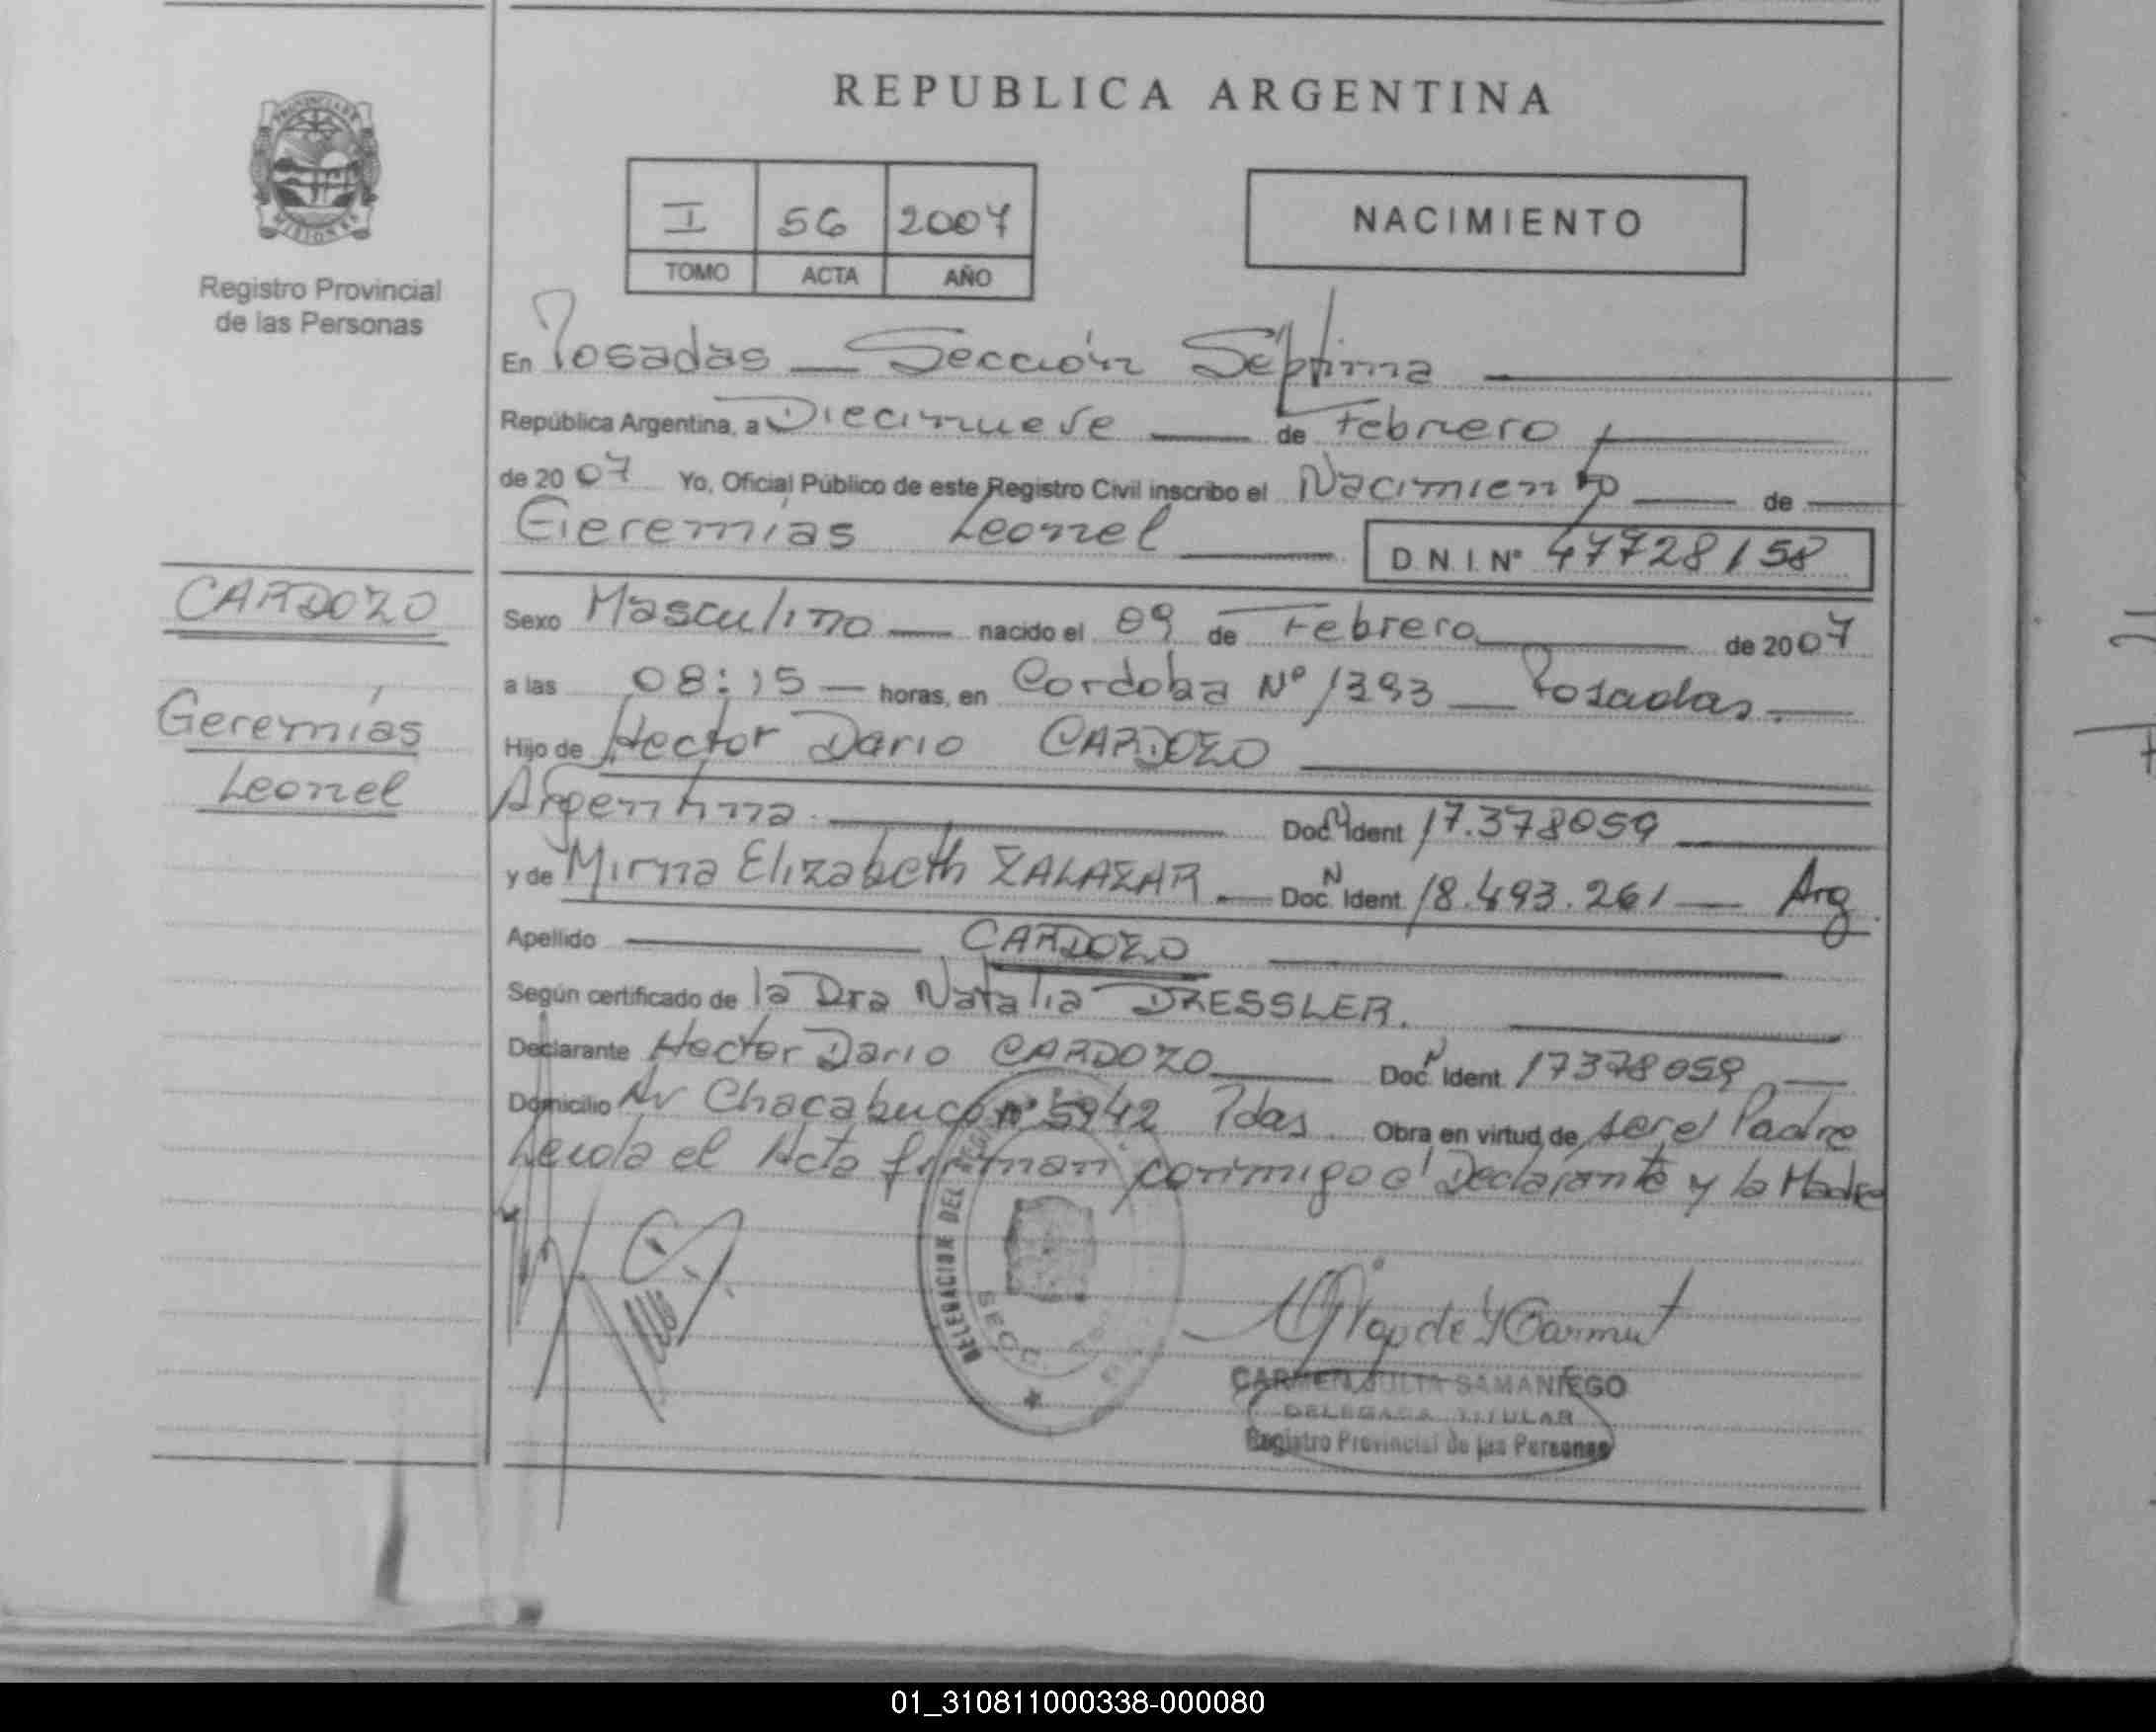 REPUBLICA ARGENTINA
PROVINCIA DE
MISIONES
Registro Provincial
de las Personas
I 56 2007
TOMO ACTA AÑO
NACIMIENTO
En Posadas — Sección Séptima
República Argentina, a Diecinueve de Febrero
de 2007 Yo, Oficial Público de este Registro Civil inscribo el Nacimiento de
Geremías Leonel D.N.I. Nº 47728158
CARDOZO
Geremías
Leonel
Sexo Masculino nacido el 09 de Febrero de 2007
a las 08:15 — horas, en Cordoba Nº 1393 — Posadas.
Hijo de Hector Dario CARDOZO
Argentina. Doc. N Ident 17.378059
y de Mirna Elizabeth ZALAZAR Doc. N Ident. 18.493.261 — Arg.
Apellido CARDOZO
Según certificado de la Dra Natalia DRESSLER.
Declarante Hector Dario CARDOZO Doc. N Ident. 17378059
Domicilio Av Chacabuco nº 5942 Pdas. Obra en virtud de ser el Padre
Leida el Acta firman conmigo el Declarante y la Madre
DELEGACION DEL
SECC.
CARMEN JULIA SAMANIEGO
DELEGADA TITULAR
Registro Provincial de las Personas
01_310811000338-000080